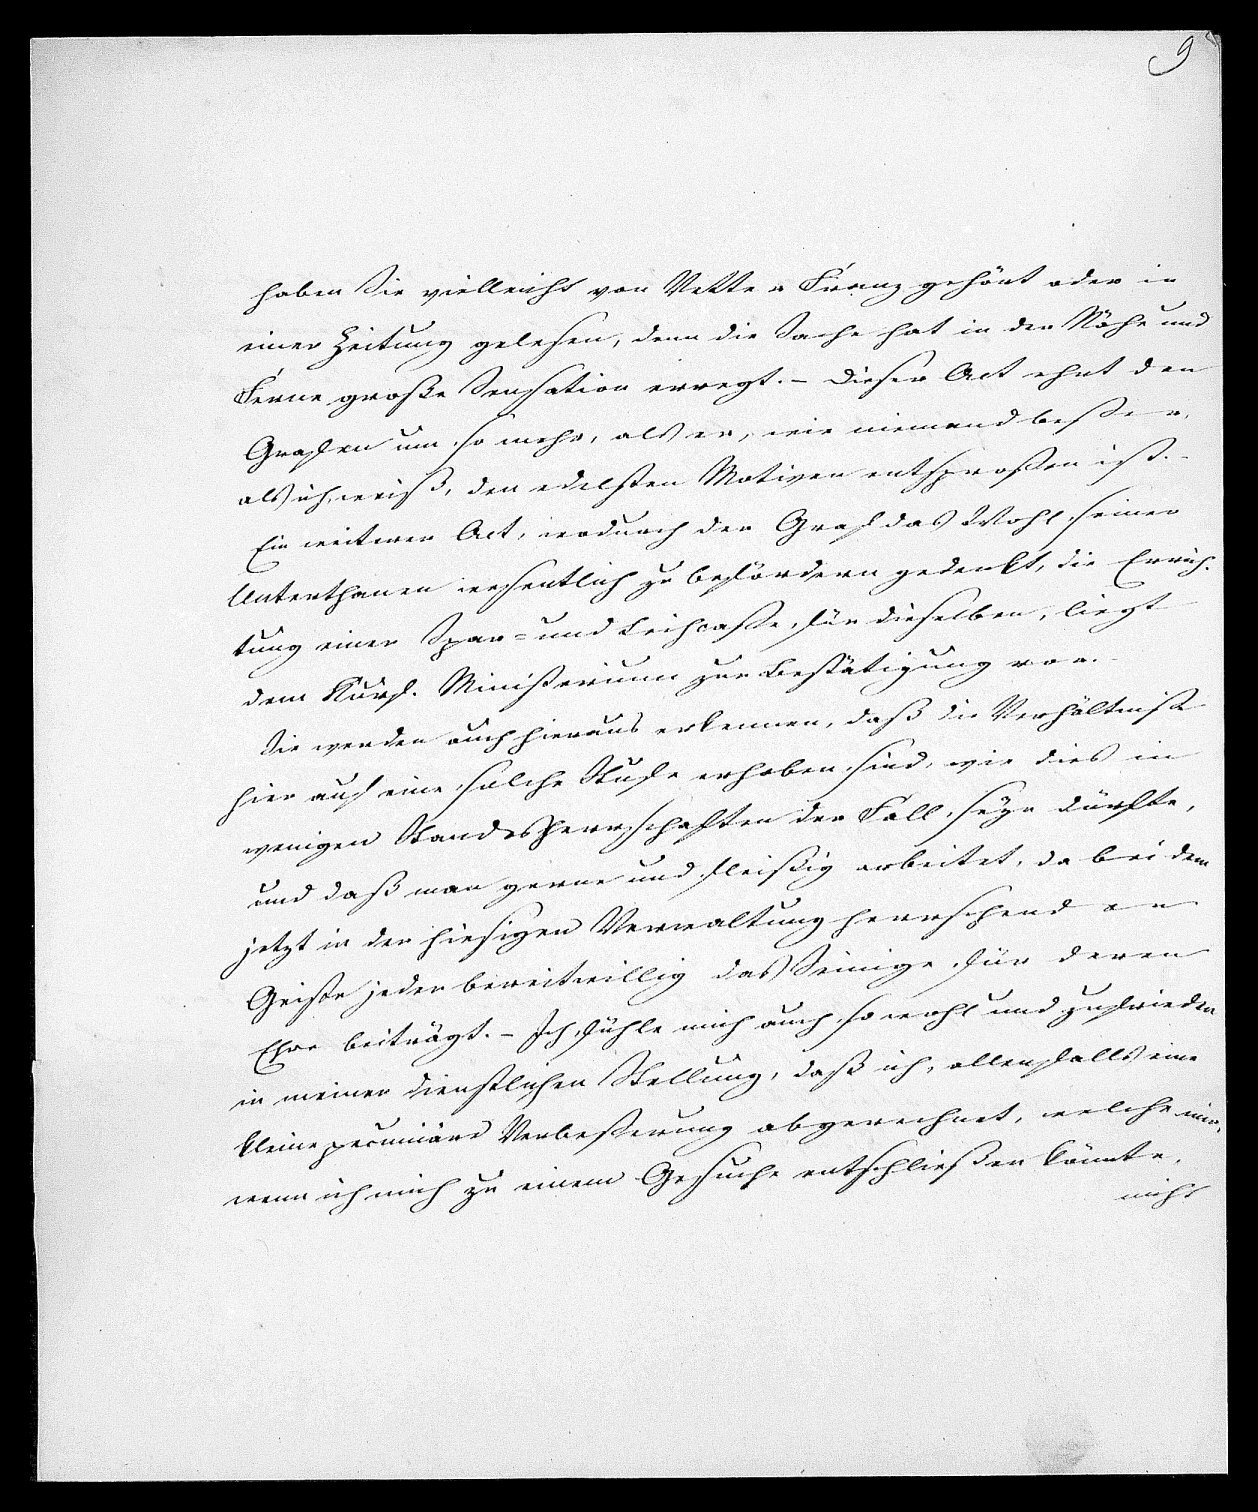 9
haben Sie vielleicht von Vetter Franz gehört oder in
einer Zeitung gelesen, denn die Sache hat in der Nähe und
Ferne große Sensation erregt. – Dieser Act ehrt den
Grafen um so mehr, als er, wie niemand beßer,
als ich, weiß, den edelsten Motiven entsproßen ist. –
Ein weiterer Act, wodurch der Graf das Wohl seiner
Unterthanen wesentlich zu befördern gedenkt, die Errich-
tung einer Spar- und Leihcasse, für dieselben, liegt
dem Kurf. Ministerium zur Bestätigung vor. –
Sie werden auch hieraus erkennen, daß die Verhältniße
hier auf eine solche Stufe erhoben sind, wie dies in
wenigen Standesherrschaften der Fall seyn dürfte,
und daß man gerne und fleißig arbeitet, da bei dem
jetzt in der hiesigen Verwaltung herrschenden
Geiste jeder bereitwillig das Seinige für deren
Ehre beiträgt. – Ich fühle mich auch so wohl und zufrieden
in meiner dienstlichen Stellung, daß ich, allenfalls eine
kleine pecuniäre Verbeßerung abgerechnet, welche mir,
wenn ich mich zu einem Gesuche entschließen könnte,
nicht